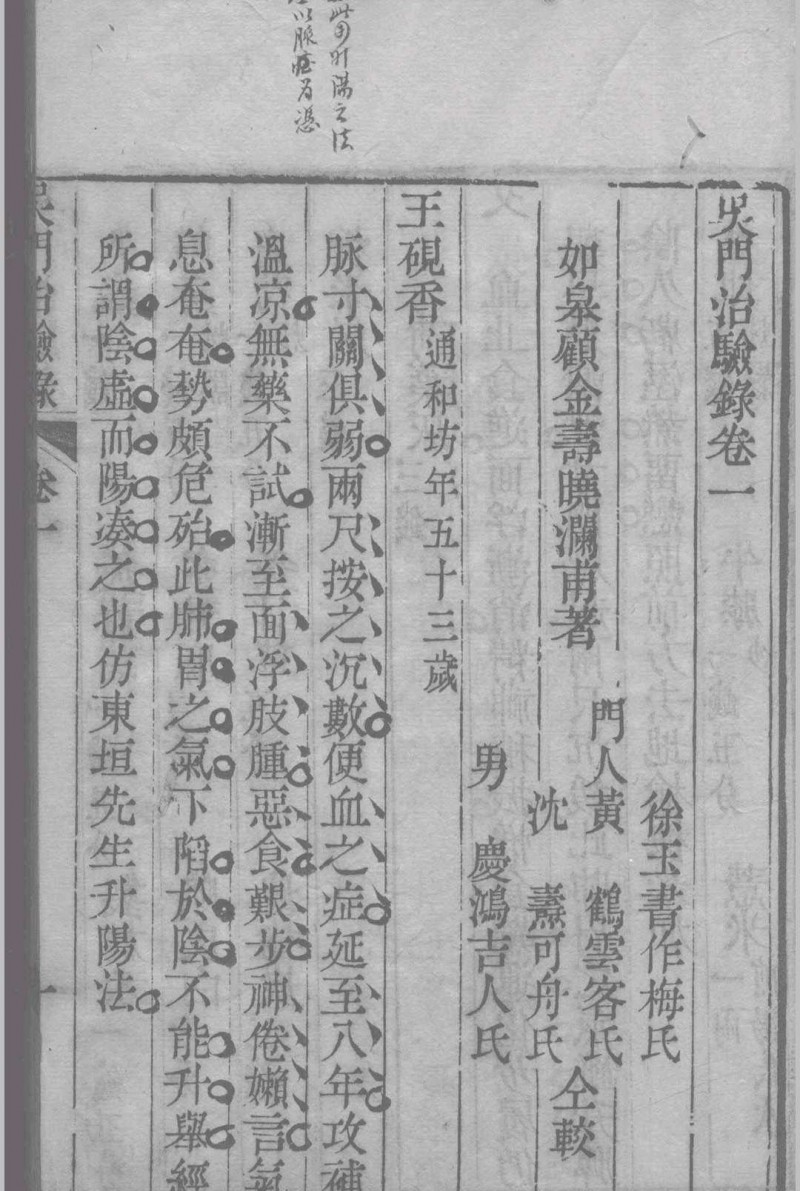 此四升陽之法
以脉症為憑
吳門治驗錄卷一
如臯顧金壽曉瀾甫著
徐玉書作梅氏
門人黃鶴雲客氏
沈燾可舟氏
男慶鴻吉人氏
仝較
王硯香通和坊年五十三歲
脉寸關俱弱兩尺按之沉數便血之症延至八年攻補
溫凉無藥不試漸至面浮肢腫惡食艱步神倦嬾言氣
息奄奄勢頗危殆此肺胃之氣下䧟於陰不能升舉經
所謂陰虛而陽湊之也仿東垣先生升陽法
吳門治驗錄
卷一
一